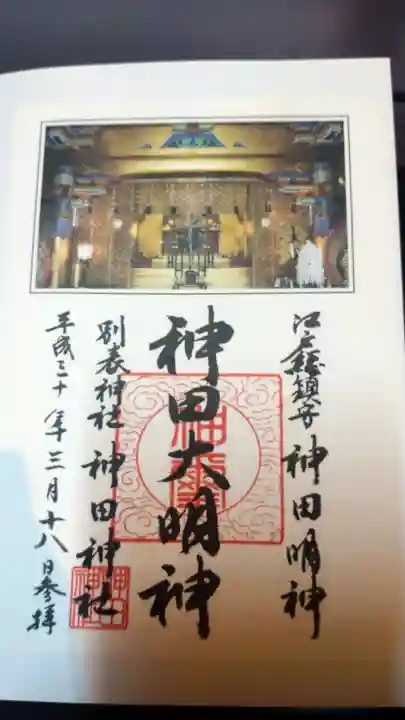 江戸總鎮守 神田明神
神田大明神
別表神社 神田神社
平成三十年三月十八日参拝
神田
神社